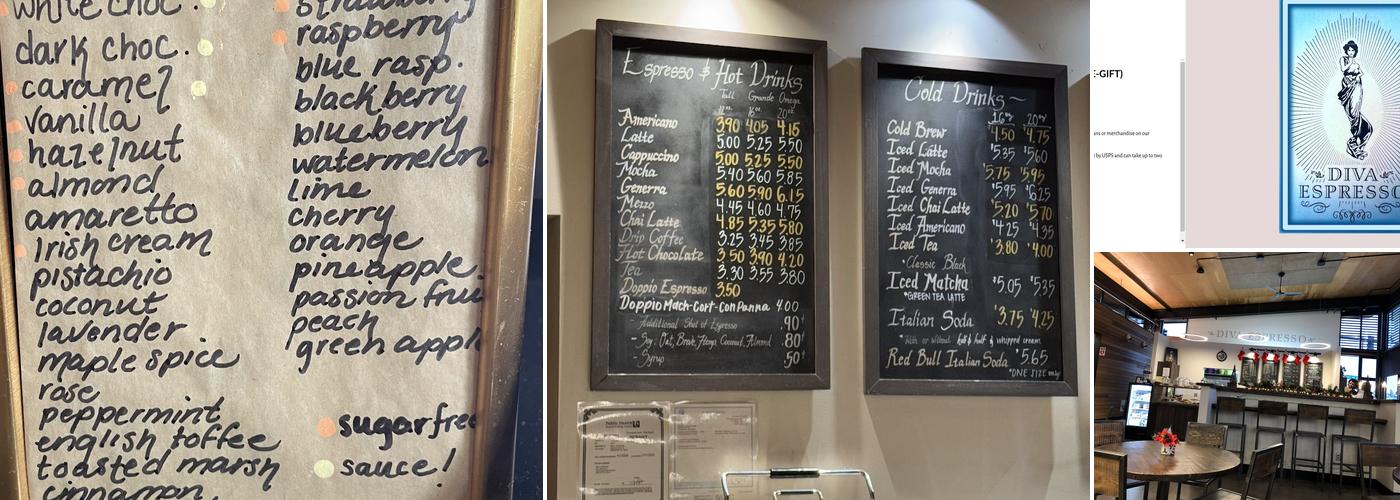 white choc.
dark choc.
caramel
vanilla
hazelnut
almond
amaretto
Irish cream
pistachio
coconut
lavender
maple spice
rose
peppermint
english toffee
toasted marsh
cinnamon
raspberry
blue rasp.
blackberry
blueberry
watermelon
lime
cherry
orange
pineapple
passion frui
peach
green appl
sugar free
sauce!
Espresso & Hot Drinks
Tall Grande Omega
12oz 16oz 20oz
Americano 3.90 4.05 4.15
Latte 5.00 5.25 5.50
Cappuccino 5.00 5.25 5.50
Mocha 5.40 5.60 5.85
Generra 5.60 5.90 6.15
Mezzo 4.45 4.60 4.75
Chai Latte 4.85 5.35 5.80
Drip Coffee 3.25 3.45 3.85
Hot Chocolate 3.50 3.90 4.20
Tea 3.30 3.55 3.80
Doppio Espresso 3.50
Doppio Mach-Cort-Con Panna 4.00
Additional Shot of Espresso .90¢
Soy, Oat, Breve, Hemp, Coconut, Almond .80¢
Syrup .50¢
Cold Drinks~
16oz 20oz
Cold Brew $4.50 $4.75
Iced Latte $5.35 $5.60
Iced Mocha $5.75 $5.95
Iced Generra $5.95 $6.25
Iced Chai Latte $5.20 $5.70
Iced Americano $4.25 $4.35
Iced Tea $3.80 $4.00
*Classic Black
Iced Matcha $5.05 $5.35
*GREEN TEA LATTE
Italian Soda $3.75 $4.25
*With or without half & half & whipped cream
Red Bull Italian Soda $5.65
*ONE SIZE only
Public Health
E-GIFT)
ans or merchandise on our
by USPS and can take up to two
DIVA
ESPRESSO
DIVA ESPRESSO